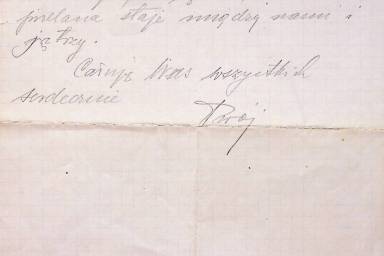 przelana staje między nami i
jątrzy.
Całuję Was wszystkich
serdecznie
Twój